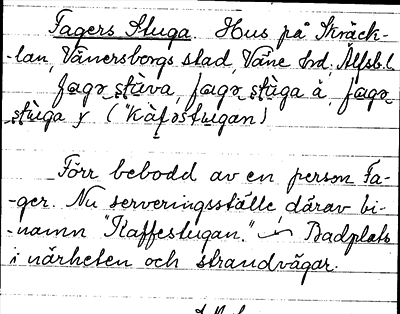 Fagers Stuga. Hus på Skräck-
-lan, Vänersborgs stad, Väne hd, Älfsb.l.
fagə stùva, fagə stùga å, fagə
stùga y ("kàfəstugan)
Förr bebodd av en person Fa-
-ger. Nu serveringsställe, därav bi-
-namn "Kaffestugan." Badplats
i närheten och strandvägar.